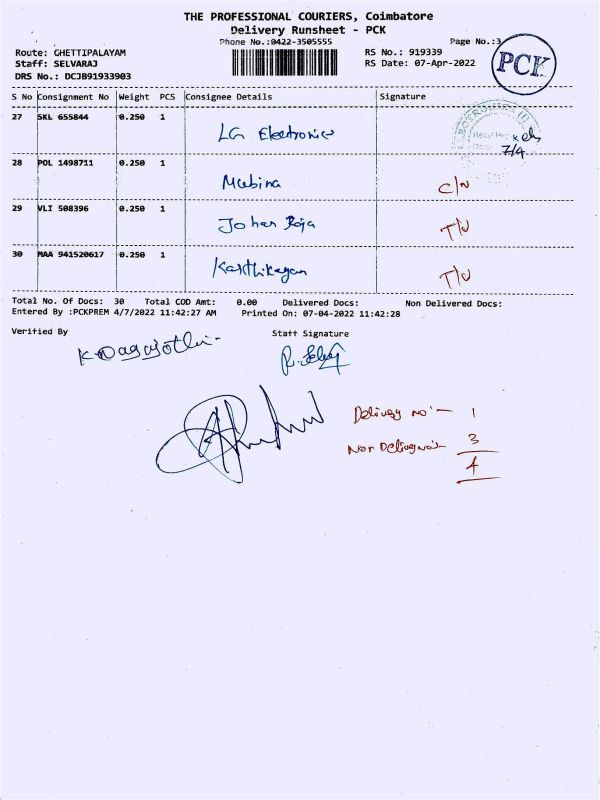 THE PROFESSIONAL COURIERS, Coimbatore
Delivery Runsheet - PCK
Phone No.:0422-3505555
Page No.:3
Route: CHETTIPALAYAM
RS No.: 919339
Staff: SELVARAJ
RS Date: 07-Apr-2022
DRS No.: DCJB91933903
PCK
S No Consignment No Weight PCS Consignee Details Signature
27 SKL 655844 0.250 1 LG Electronics
7/4
28 POL 1498711 0.250 1 Mubina C/N
29 VLI 508396 0.250 1 Johan Roja T/U
30 MAA 941520617 0.250 1 Karthikayan T/U
Total No. Of Docs: 30 Total COD Amt: 0.00 Delivered Docs: Non Delivered Docs:
Entered By :PCKPREM 4/7/2022 11:42:27 AM Printed On: 07-04-2022 11:42:28
Verified By
Staff Signature
Delivery no:- 1
Non 3
4